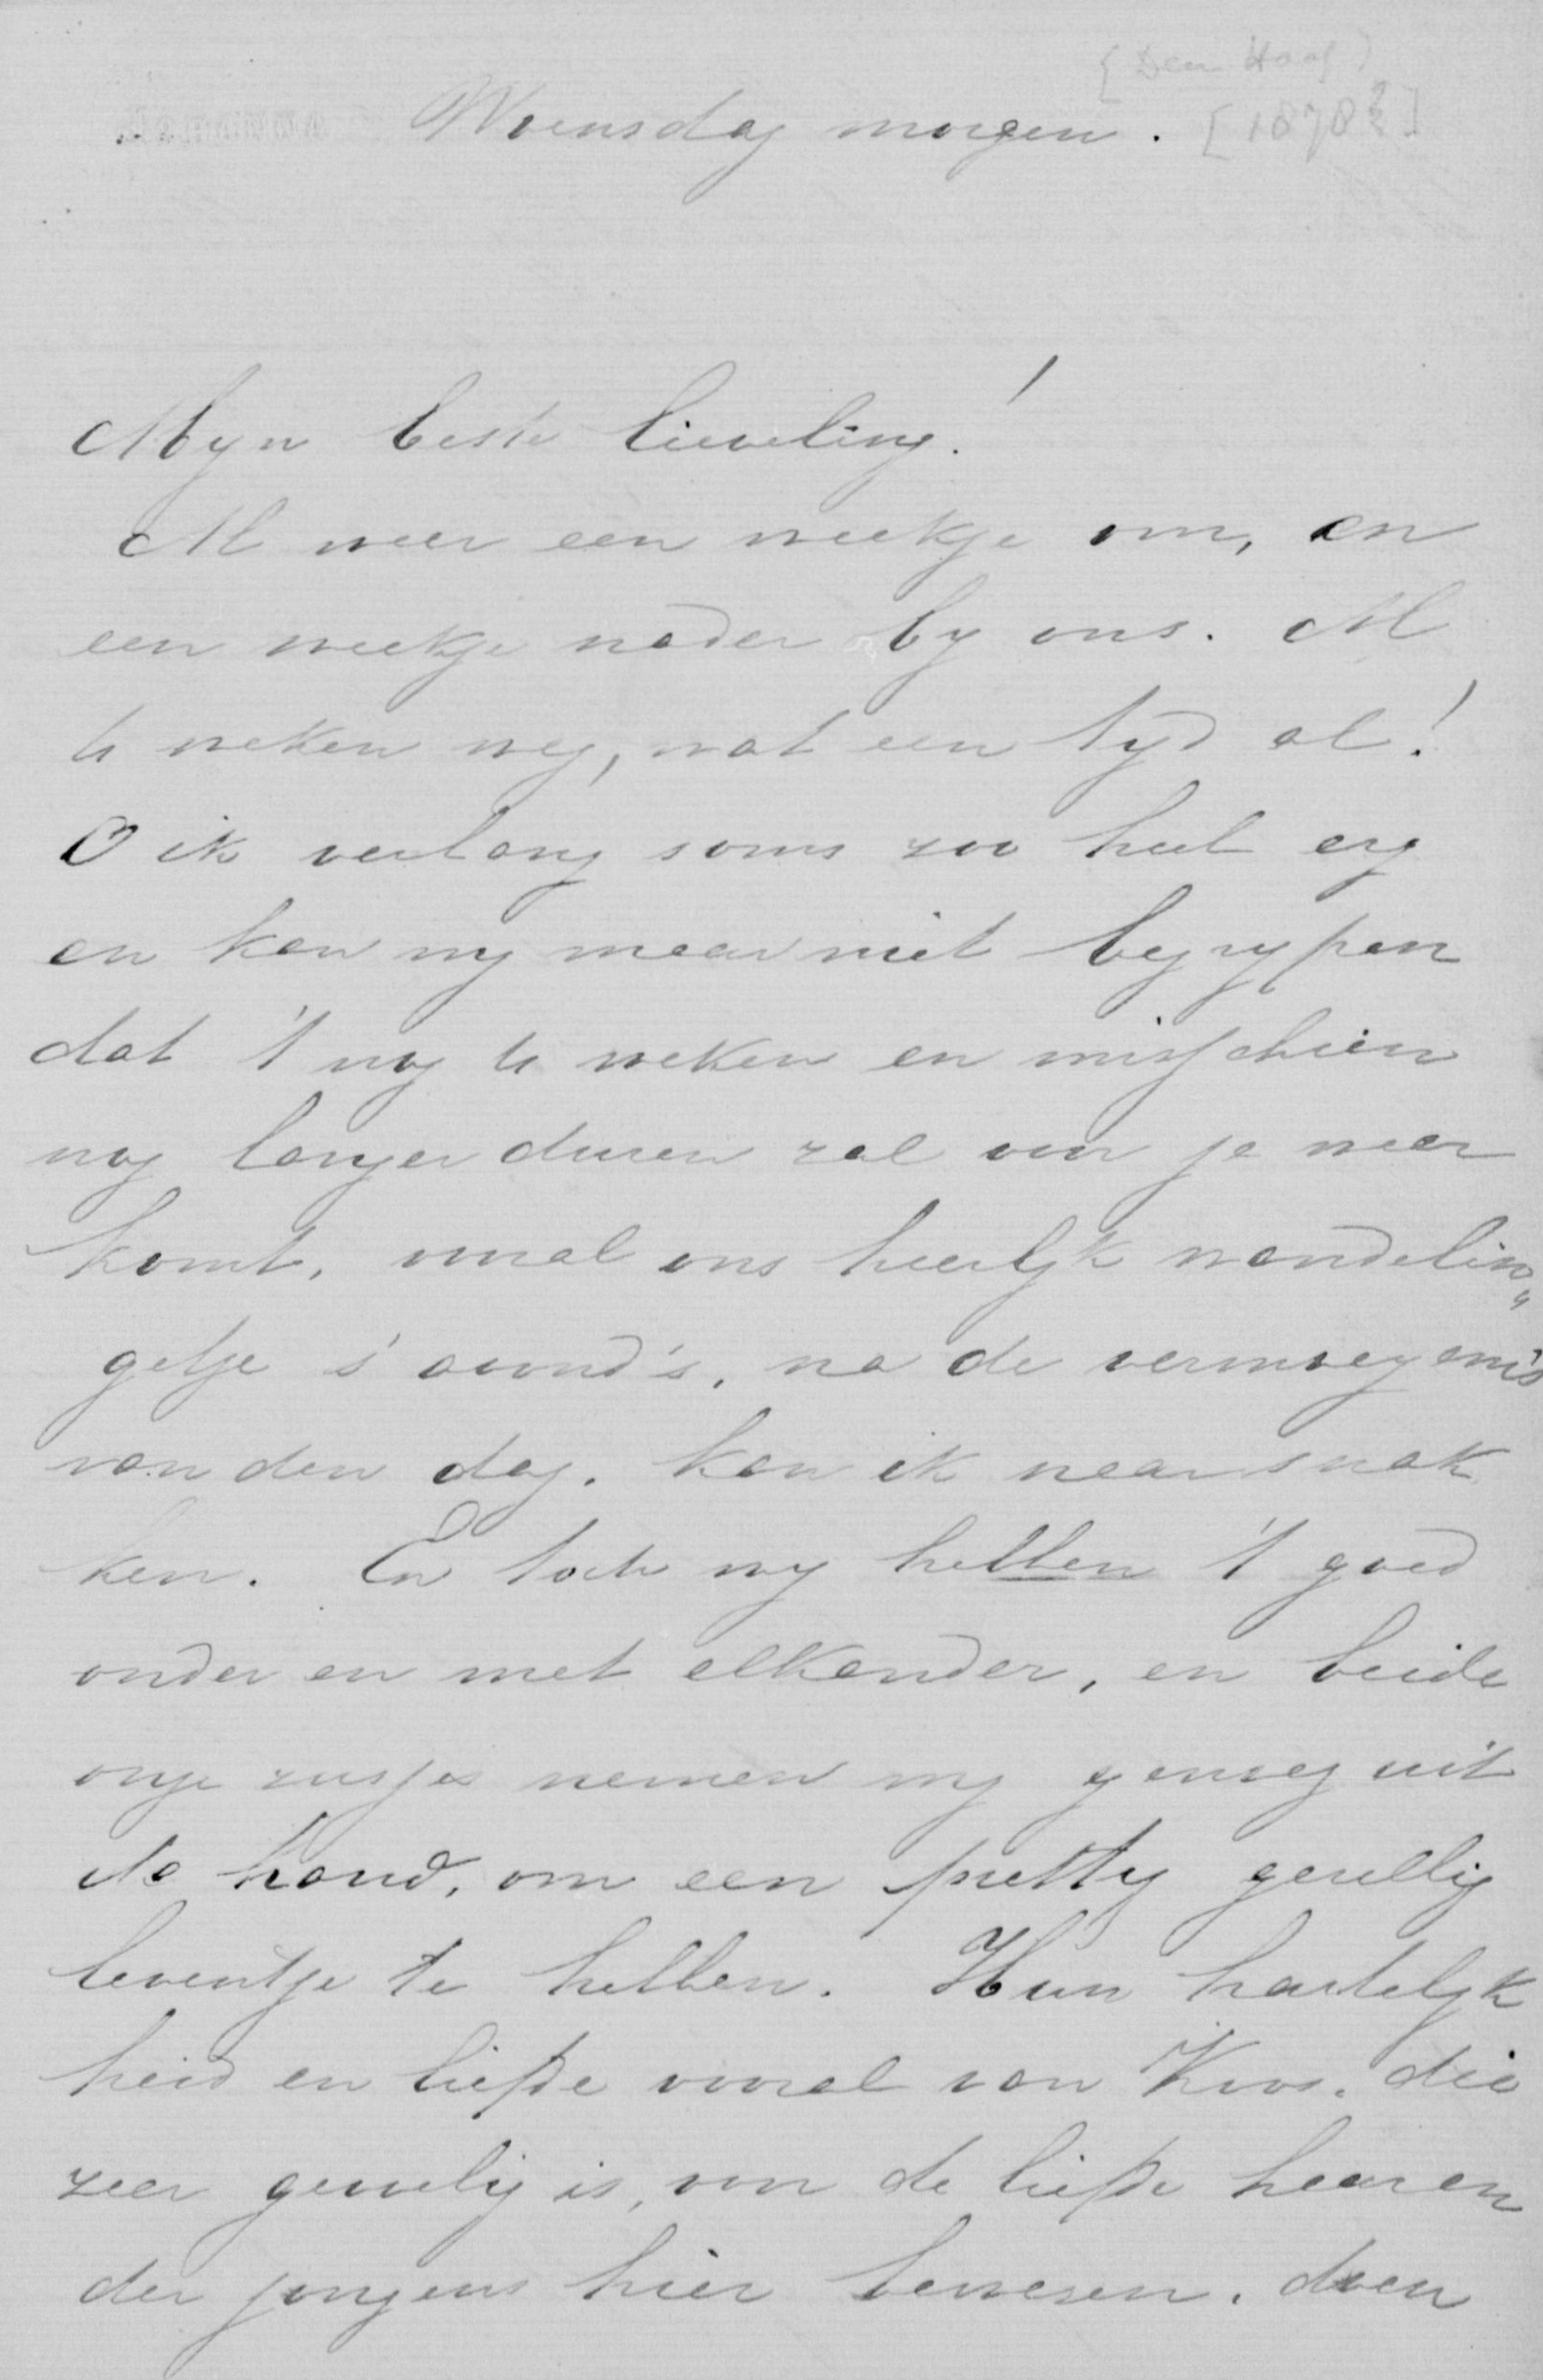 [Den Haag]
Woensdag morgen. [1878?]
Myn beste lieveling!
Al weer een weekje om, en
een weekje nader by ons. Al
6 weken weg, wat een tyd al!
O ik verlang soms zoo heel erg
en kan my maar niet begrypen
dat 't nog 6 weken en misschien
nog langer duren zal voor je weer
komt, vooral ons heerlyk wandelin„
getje s'avond's, na de vermoeyenis
van den dag. kan ik naar snak
ken. En toch wy hebben 't goed
onder en met elkander, en beide
onze zusjes nemen my genoeg uit
de hand, om een prettig gezellig
leventje te hebben. Hun hartelyk
heid en liefde vooral van Koos. die
zeer gevoelig is, voor de liefde haar en
der jongens hier bewezen. doen